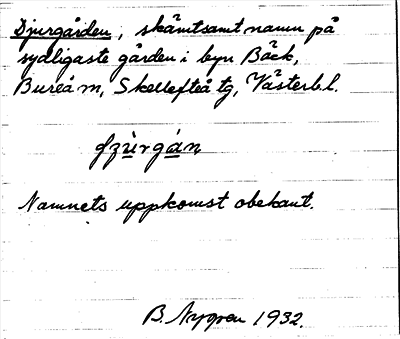 Djurgården, skämtsamt namn på
sydligaste gården i byn Bäck,
Bureå sn, Skellefteå tg, Västerbl.
Namnets uppkomst obekant.
B. Nygren 1932.